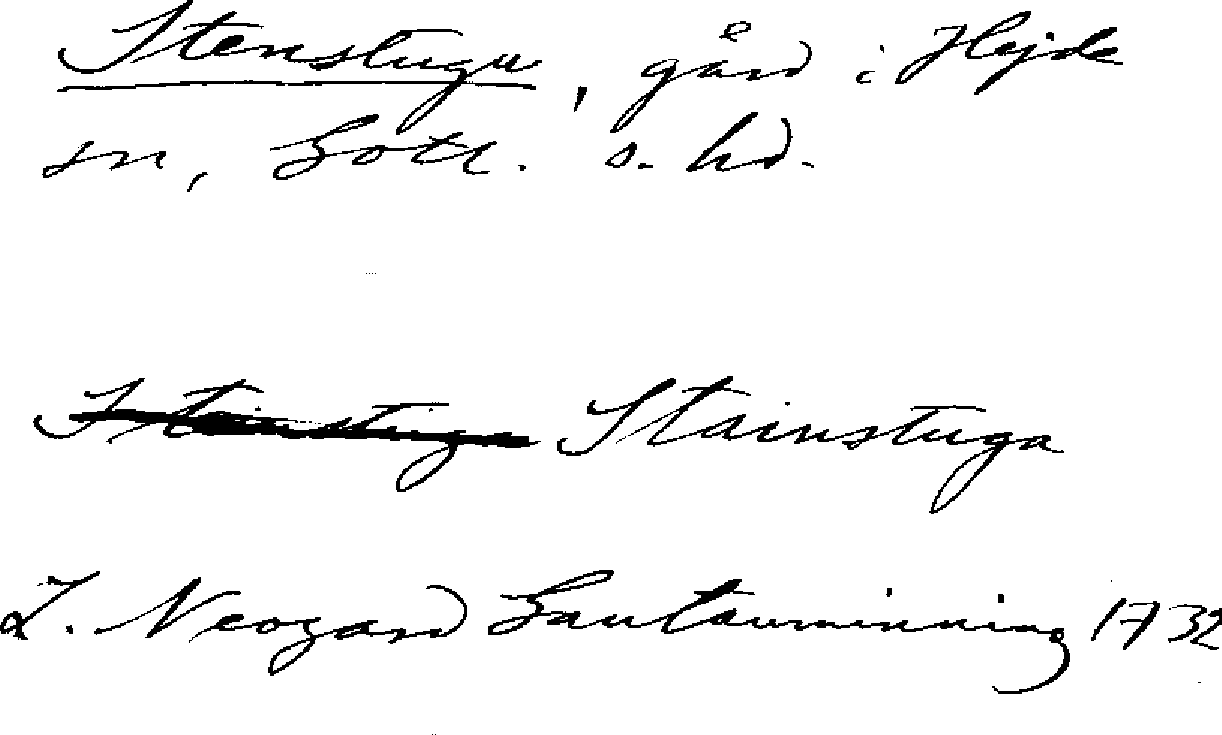 Stenstugu, gård i Hejde
sn, Gotl. s. hd.
Stainstuga Stainstuga
L. Neogard Gautauminning 1732